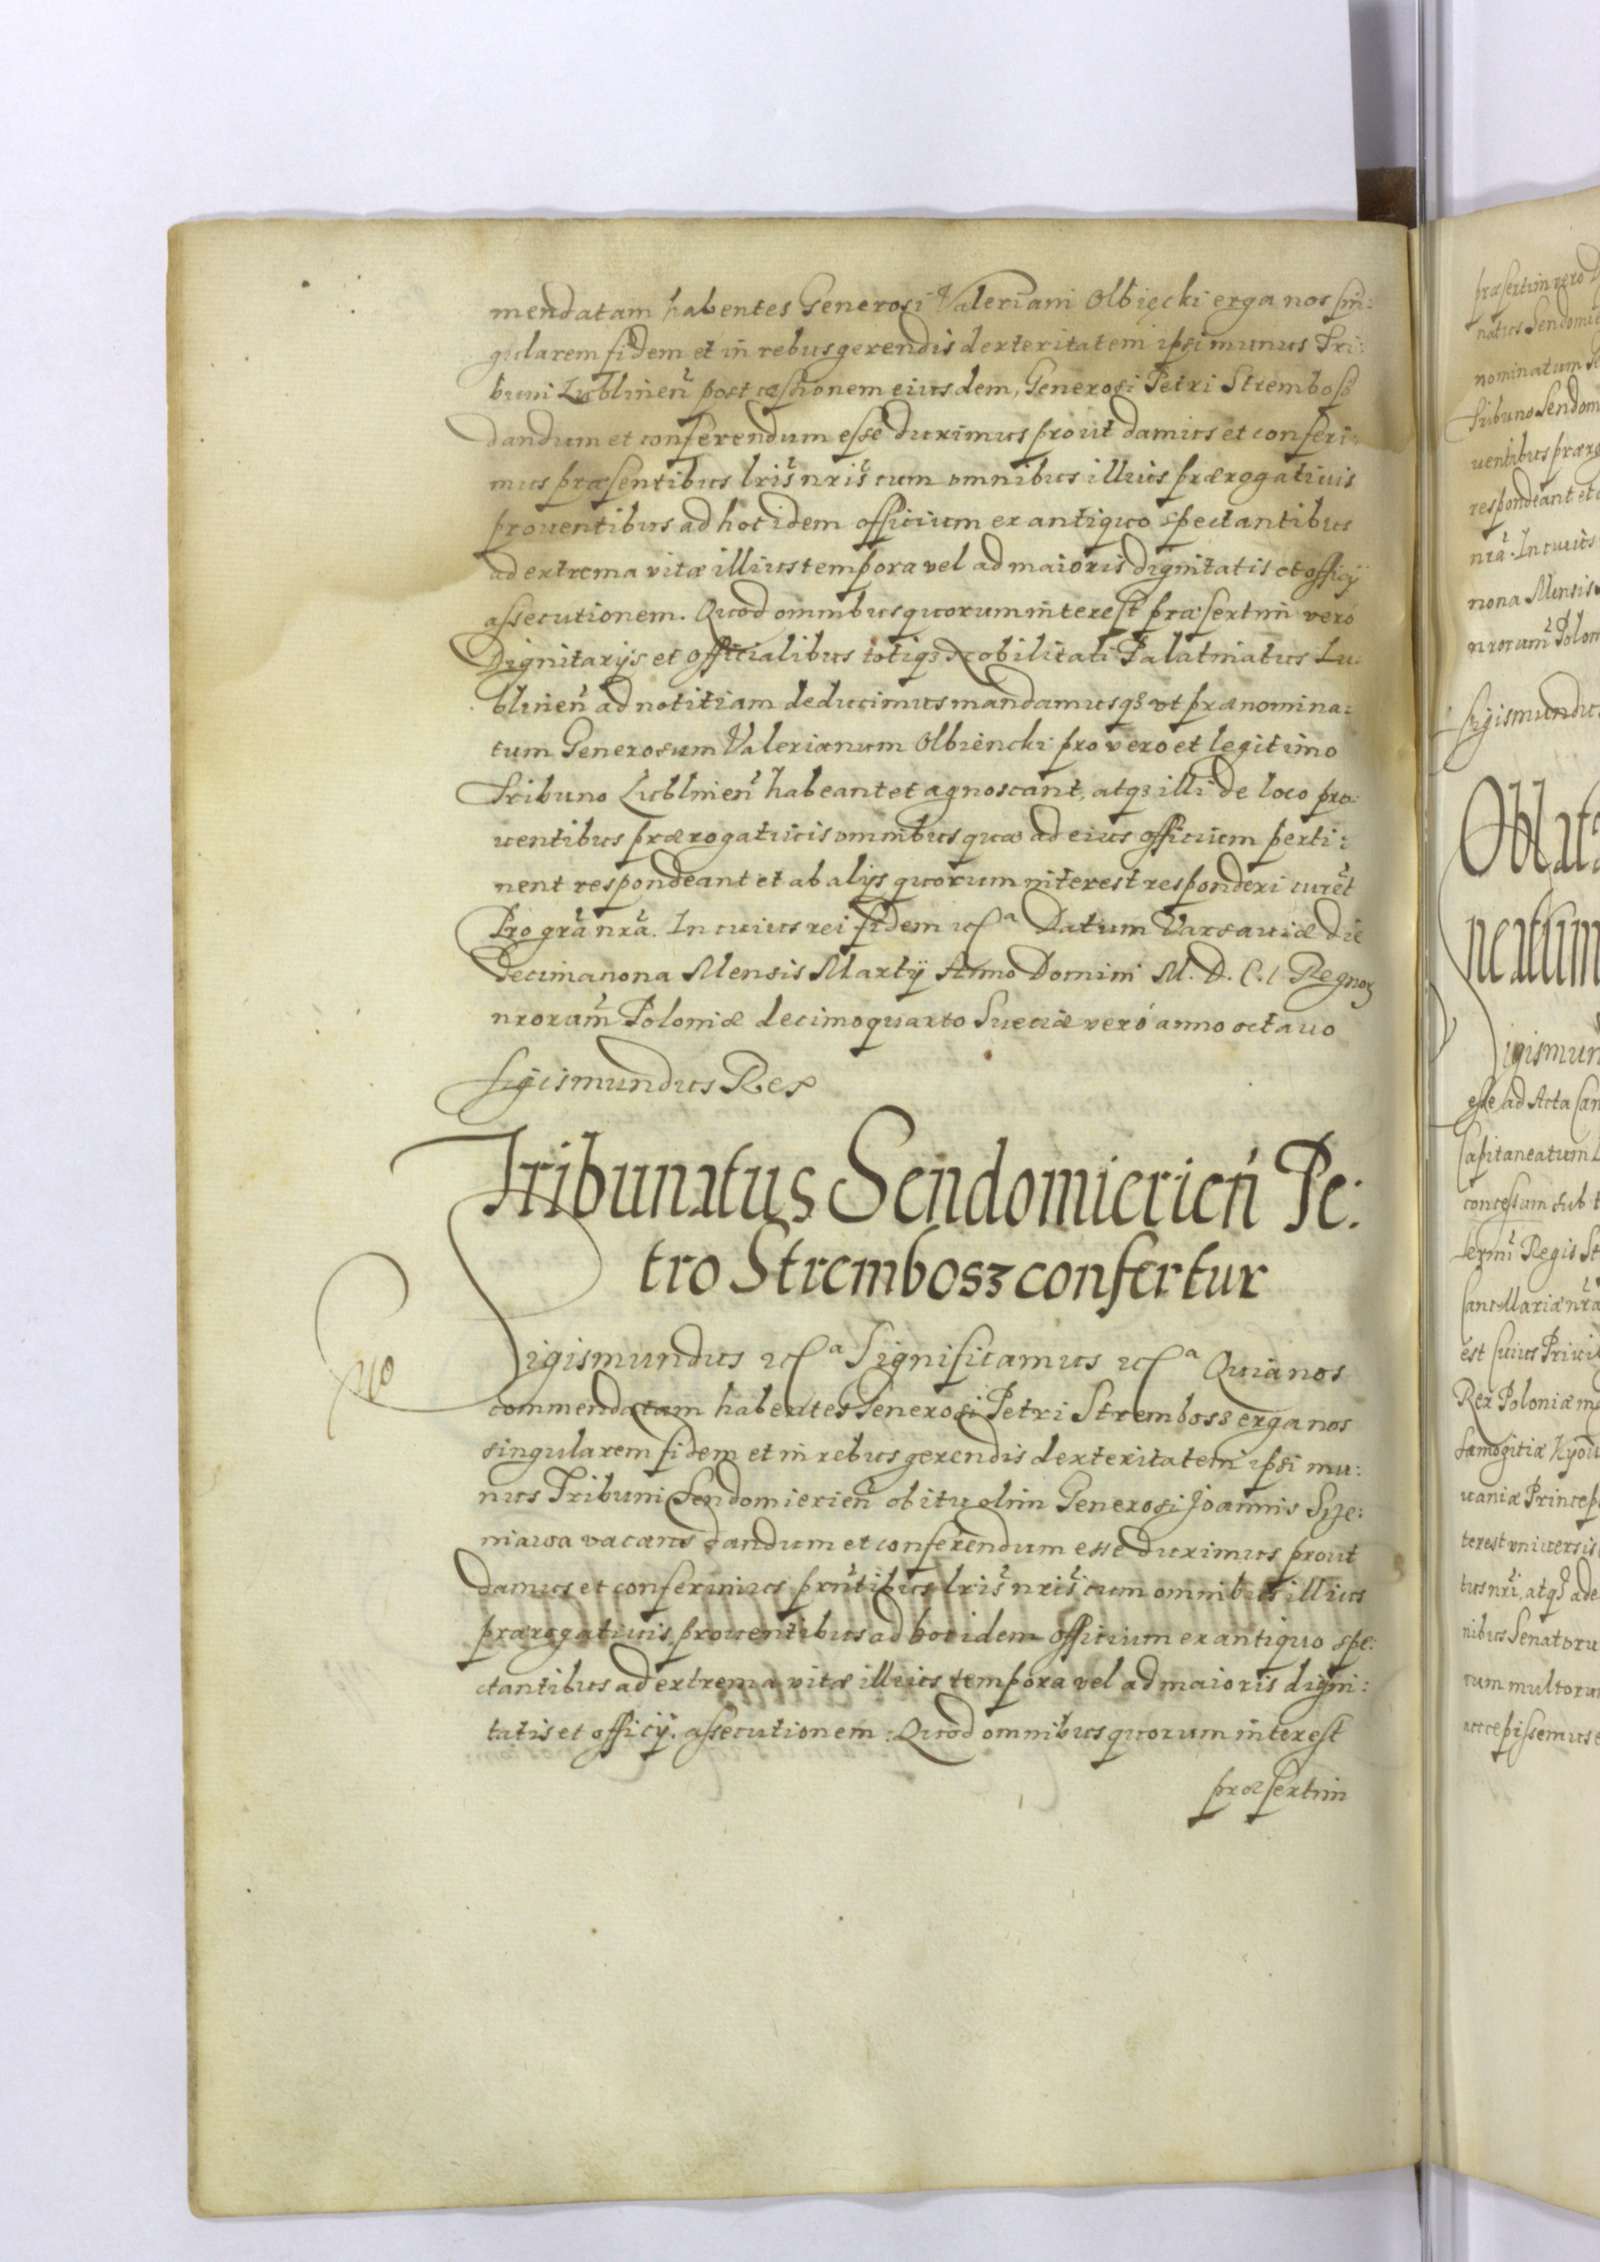 mendatam habentes Generosi Valeriani Olbięcki erga nos sin:
gularem fidem et in rebus gerendis dexteritatem ipsi munus Tri:
buni Lublinen̄ post cessionem eiusdem, Generosi Petri Strembosz
dandum et conferendum esse duximus prout damus et conferi:
mus præsentibus lris̄ nris̄ cum omnibus illius prærogativis
proventibus ad hoc idem officium ex antiquo spectantibus
ad extrema vitæ illius tempora vel ad maioris dignitatis et officij
assecutionem. Quod omnibus quorum interest præsertim vero
Dignitarijs et Officialibus totiq3 Nobilitati Palatinatus Lu:
blinen̄ ad notitiam deducimus mandamusq3 ut prænomina:
tum Generosum Valerianum Olbiencki pro vero et legitimo
Tribuno Lublinen̄ habeant et agnoscant, atq3 illi de loco pro:
uentibus prærogatiuis omnibus quæ ad eius officium perti:
nent respondeant et ab alijs quorum interest responderi curet̄
Pro gr̄a nr̄a. In cuius rei fidem etc̄ᵃ Datum Varsauiæ Die
Decimanona Mensis Martij Anno Domini M. D. C. I Regnoꝝ
nrorum̄ Poloniæ decimoquarto Sueciæ veró anno octauo
Sigismundus Rex
Tribunatus Sendomierien̄ Pe:
tro Strembosz confertur
Sigismundus etc̄ᵃ Significamus etc̄ᵃ Quia nos
commendatam habentes Generosi Petri Strembosz erga nos
singularem fidem et in rebus gerendis dexteritatem ipsi mu:
nus Tribuni Sendomierien̄ obitu olim Generosi Joannis Sije:
niawa vacans dandum et conferendum esse duximus prout
damus et conferimus prn̄tibus lris̄ nris̄ cum omnibus illius
prærogatiuis prouentibus ad hoc idem officium ex antiquo spe:
ctantibus ad extrema vitæ illius tempora vel ad maioris digni:
tatis et officij assecutionem. Quod omnibus quorum interest
præsertim
præsertim vero
nominatum
Tribuno Sendom
uentibus prærog
respondeant et
nr̄a. In cuius
nona Mensis
nrorum̄ Polon
Sigismundus
Oblat
neatum
Sigismun
esse ad Acta Can
Capitaneatum
concessam sub
Regis St
Cancellariæ nr̄a
est cuius
Rex Poloniæ
Samogitiæ Kyou
uaniæ Princep
terest vniuersis
tus nr̄i, atq3 ade
nibus Senatoru
cum multoru
accepissemus